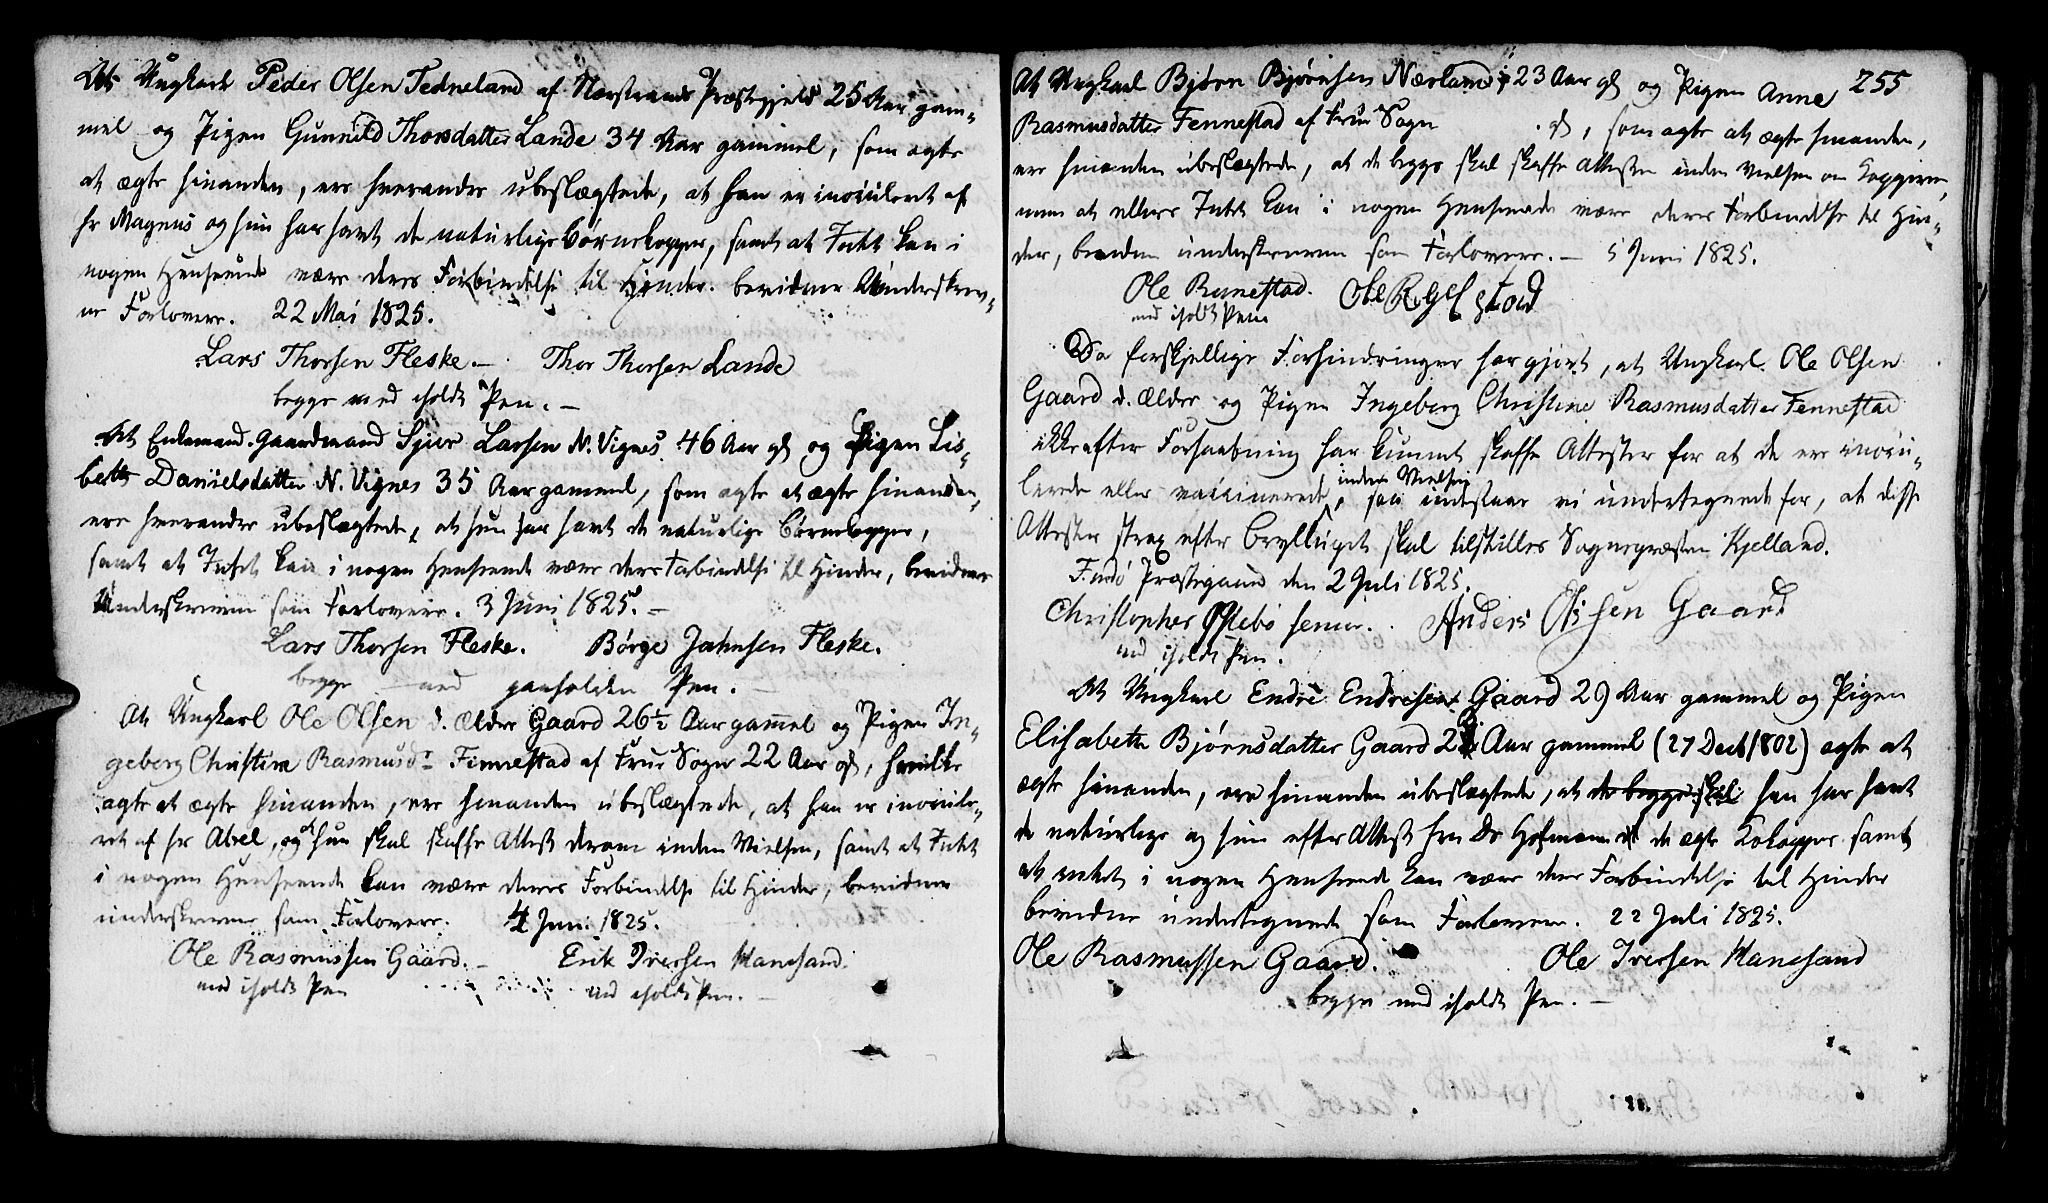 At Ungkarl Peder Olsen Tedneland af Nærstrands Præstegjeld 25 Aar gam-
mel og Pigen Gunnild Thorsdatter Lande 34 Aar gammel, som agte
at ægte hinanden, ere hverandre ubeslægtede, at han er inoculeret af
Hr Magnus og hun har havt de naturlige Børnekopper, samt at Intet kan i
nogen Henseende være deres Forbindelse til Hinder. bevidner Underskrev-
ne Forlovere. 22 Mai 1825.
Lars Thorsen Fleske. - Thor Thorsen Lande
begge med iholdt Pen. -
At Enkemand Gaardmand Sjur Larsen N. Vignes 46 Aar gl og Pigen Lis-
beth Danielsdatter N. Vignes 35 Aar gammel, som agte at ægte hinanden,
ere hverandre ubeslægtede, at hun har havt de naturlige Børnekopper,
samt at Intet kan i nogen Henseende være deres Forbindelse til Hinder, bevidner
Underskrevne som Forlovere. 3 Juni 1825. -
Lars Thorsen Fleske. Børge Jahnsen Fleske.
begge med paaholden Pen. -
At Ungkarl Ole Olsen d. Ælder Gaard 26½ Aar gammel og Pigen In-
geborg Christine Rasmusdr Finnestad af Frue Sogn 22 Aar gl, hvilke
agte at ægte hinanden, ere hinanden ubeslægtede, at han er inocule-
ret af Hr Abel, og at hun skal skaffe Attest derom inden Vielsen, samt at Intet
i nogen Henseende kan være deres Forbindelse til Hinder, bevidner
underskrevne som Forlovere. 4 Juni 1825.
Ole Rasmussen Gaard. - Erik Iversen Hanesand.
med iholdt Pen med iholdt Pen. -
255
At Ungkarl Bjørn Bjørnsen Nærland 23 Aar gl og Pigen Anne
Rasmusdatter Fennestad af Frue Sogn gl, som agte at ægte hinanden,
ere hinanden ubeslægtede, at de begge skal skaffe Attester inden Vielsen om Kopperne,
men at ellers Intet kan i nogen Henseende være deres Forbindelse til Hin-
der, bevidner underskrevne som Forlovere. - 5 Juni 1825.
Ole Runestad. Ole R. Gelstad
med iholdt Pen
Da forskjellige Forhindringer har gjort, at Ungkarl Ole Olsen
Gaard d. Ælder og Pigen Ingeborg Christine Rasmusdatter Fennestad
ikke efter Forhaabning har kunnet skaffe Attester for at de ere inocu-
lerede eller vaccinerede inden Vielsen, saa indestaar vi undertegnede for, at disse
Attester strax efter Brylluppet skal tilstilles Sognepræsten Kjelland.
Findø Præstegaard den 2 Juli 1825.
Christopher Ladebö senior. Anders Olsen Gaard
med iholdt Pen.
At Ungkarl Endre Endresen Gaard 29 Aar gammel og Pigen
Elisabeth Bjørnsdatter Gaard 23 Aar gammel (27 Decb 1802) agte at
ægte hinanden, ere hinanden ubeslægtede, at de begge skal han har havt
de naturlige og hun efter Attest fra Dr Hofmann de ægte Kokopper samt
at intet i nogen Henseende kan være deres Forbindelse til Hinder
bevidner undertegnede som Forlovere. 22 Juli 1825.
Ole Rasmussen Gaard. Ole Iversen Hanesand
begge med iholdt Pen. -